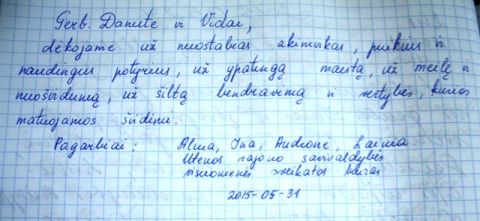 Gerb. Danute ir Vidai,
dėkojame už nuostabias akimirkas, puikius ir
naudingus potyrius, už ypatingą maistą, už meilę ir
nuoširdumą, už šiltą bendravimą ir vertybes, kurios
matuojamos širdimi.
Pagarbiai: Alma, Ina, Audronė, Laima
Utenos rajono savivaldybės
visuomenės sveikatos biuras
2015-05-31